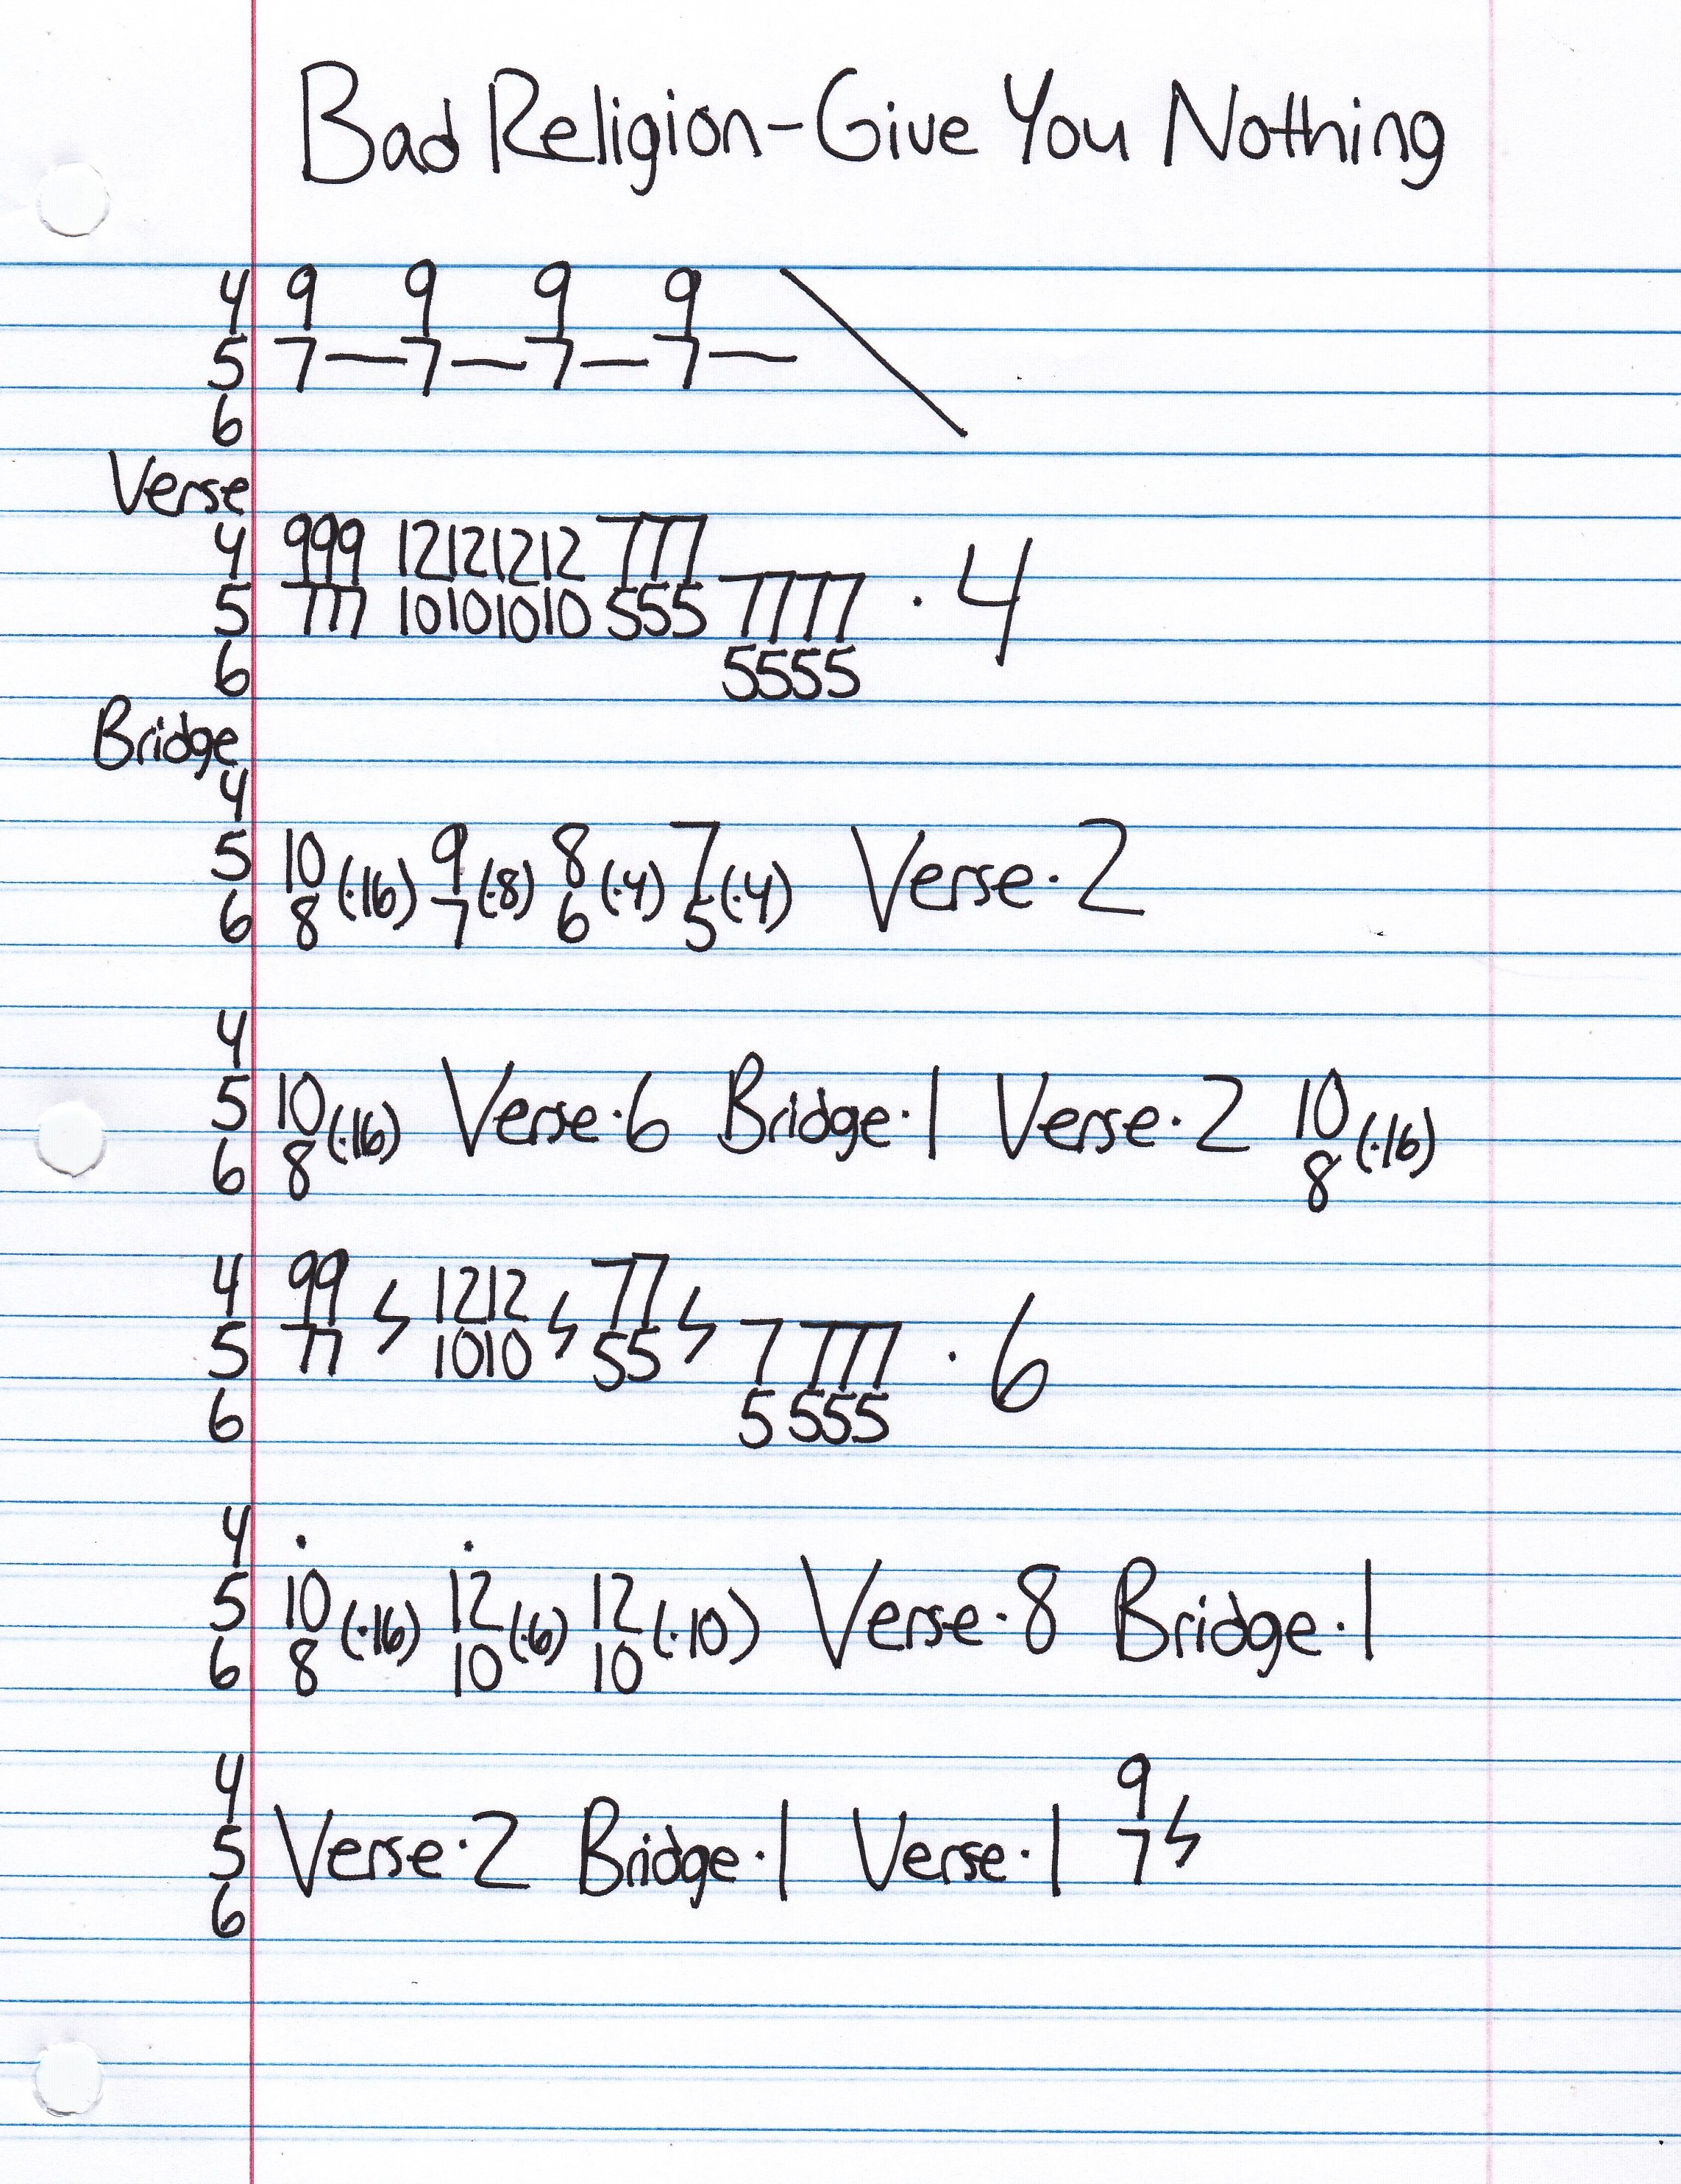 Bad Religion-Give You Nothing
4 9 9 9 9
5 7—7—7—7— \
6
Verse
4 999 12121212 777
5 777 10101010 555 7777 · 4
6 5555
Bridge
4
5 10 (·16) 9 (·8) 8 (·4) 7 (·4) Verse·2
6 8 7 6 5
4
5 10 (·16) Verse·6 Bridge·1 Verse·2 10 (·16)
6 8 8
4 99 1212 77
5 77 1010 55 7 777 · 6
6 5 555
4 · ·
5 10 (·16) 12 (·6) 12 (·10) Verse·8 Bridge·1
6 8 10 10
4 9
5 Verse·2 Bridge·1 Verse·1 7
6